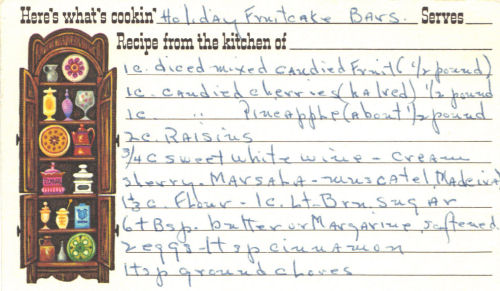 Here's what's cookin' Holiday Fruitcake Bars. Serves
Recipe from the kitchen of
1c. diced mixed candied Fruit (1/2 pound)
1c. candied cherries (halved) 1/2 pound
1c. " Pineapple (about 1/2 pound
2c. Raisins
3/4 c sweet white wine - cream
sherry. Marsala - muscatel Madeira
1 1/3 c. Flour - 1c. Lt. Brn. sugar
6 tBsp. butter or Margarine, softened.
2 eggs - 1tsp cinnamon
1tsp ground cloves